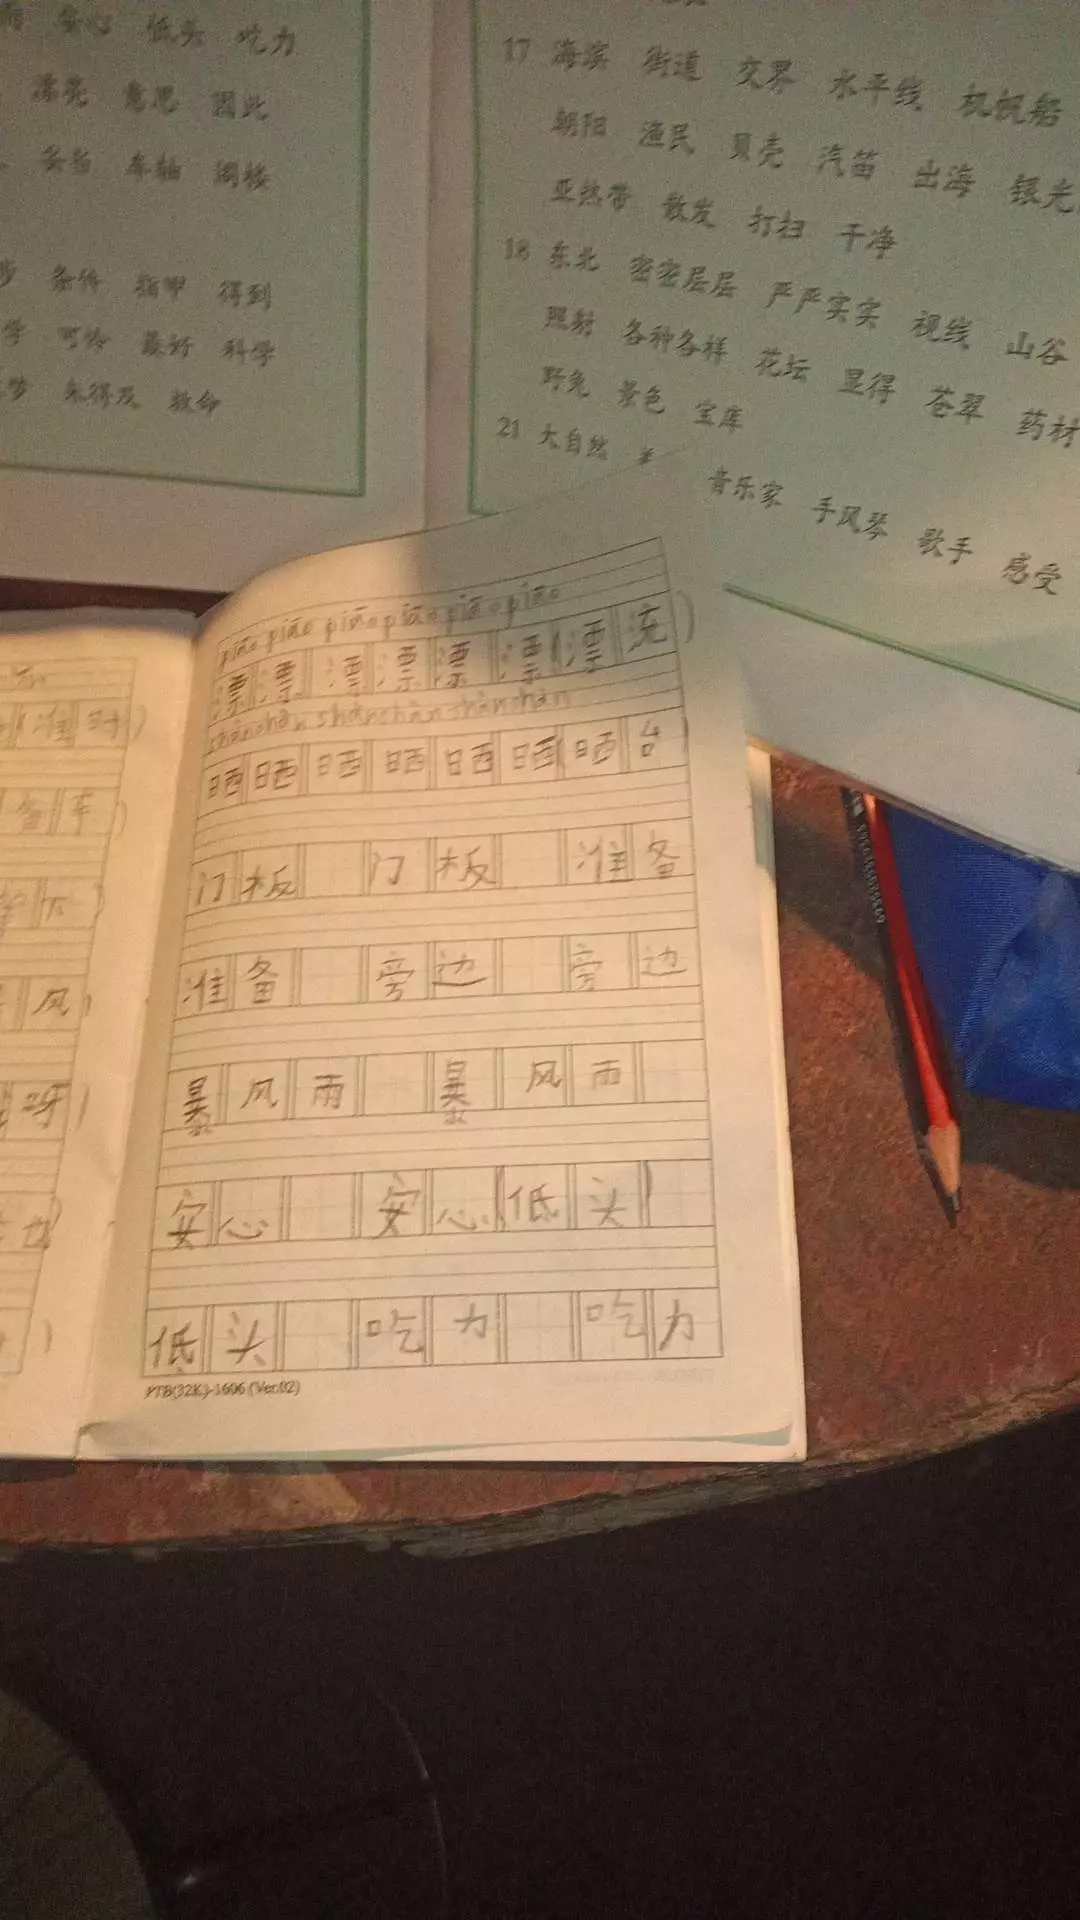 安心 低头 吃力
漂亮 意思 因此
妥当 车轴 阁楼
条件 指甲 得到
可怜 最好 科学
来得及 救命
17 海滨 街道 交界 水平线 机帆船
朝阳 渔民 贝壳 汽笛 出海 银光
亚热带 散发 打扫 干净
18 东北 密密层层 严严实实 视线 山谷
照射 各种各样 花坛 显得 苍翠 药材
野兔 景色 宝库
21 大自然 音乐家 手风琴 歌手 感受
准 时)
备 车)
下)
风)
呀)
也)
)
piāo piāo piāo piāo piāo piāo
漂 漂 漂 漂 漂 漂(漂 流)
shàn shàn shàn shàn shàn shàn
晒 晒 晒 晒 晒 晒(晒 台)
门 板 门 板 准 备
准 备 旁 边 旁 边
暴 风 雨 暴 风 雨
安 心 安 心(低 头)
低 头 吃 力 吃 力
PTB(32K)-1606 (Ver.02)